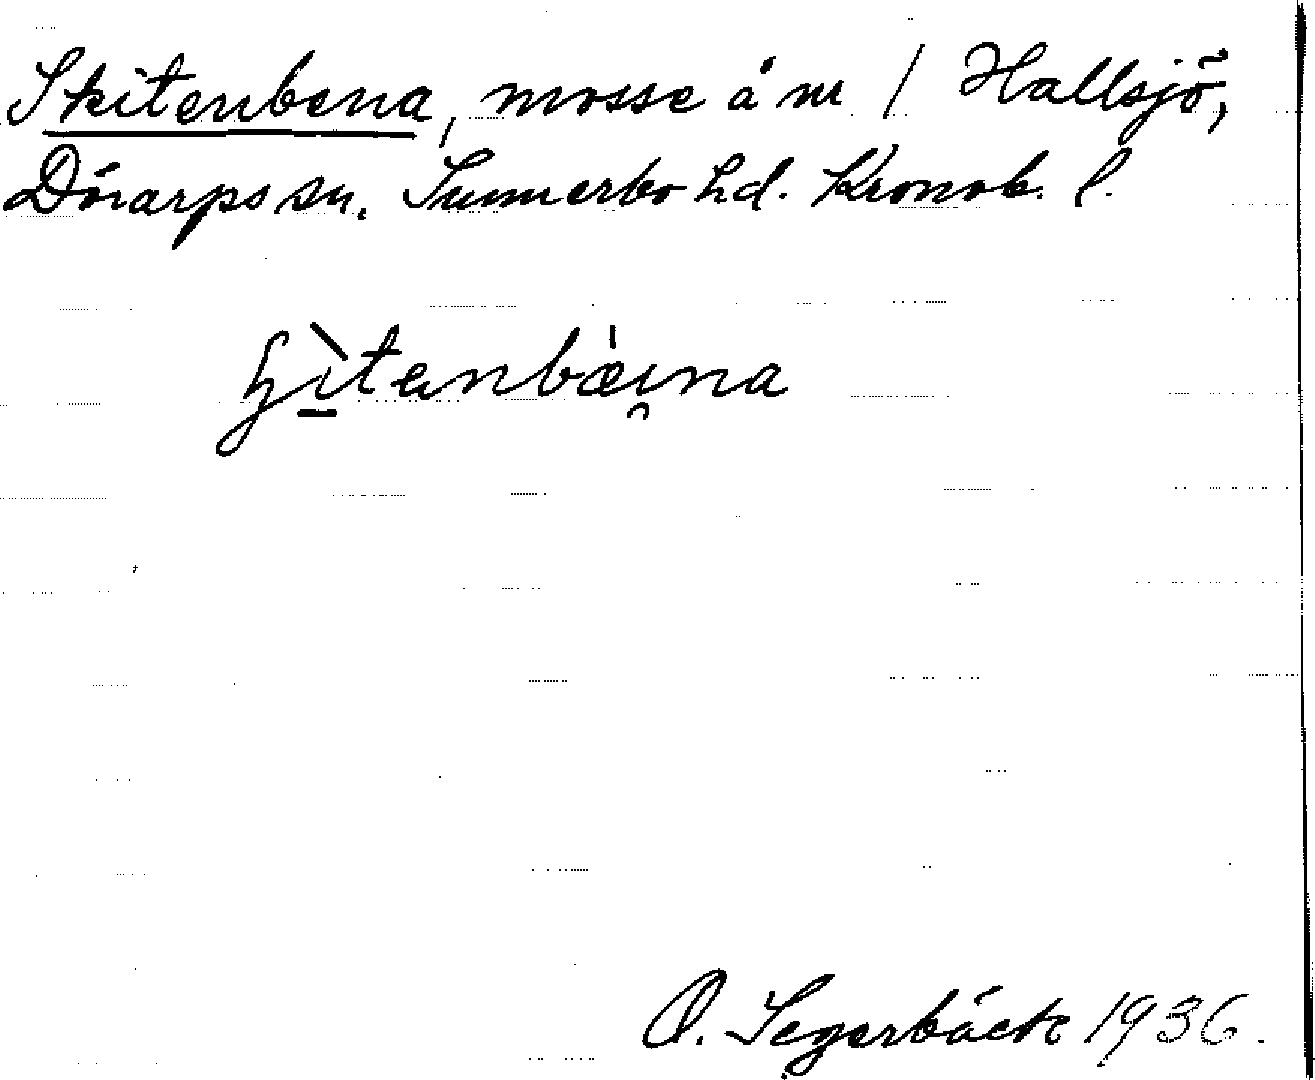 Skitenbena, mosse å nr 1 Hallsjö,
Dörarps sn. Sunnerbo hd. Kronob. l.
O. Segerbäck 1936.